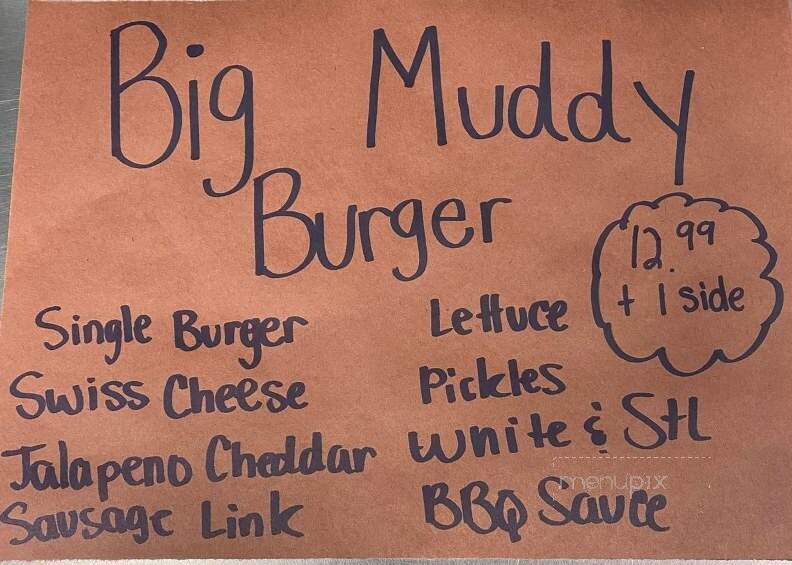 Big Muddy
Burger
12.99
+ 1 side
Single Burger
Swiss Cheese
Jalapeno Cheddar
Sausage Link
Lettuce
Pickles
White & Stl
BBQ Sauce
menupix